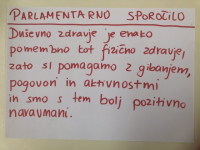 PARLAMENTARNO SPOROČILO
Duševno zdravje je enako
pomembno kot fizično zdravje,
zato si pomagamo z gibanjem,
pogovori in aktivnostmi
in smo s tem bolj pozitivno
naravnani.